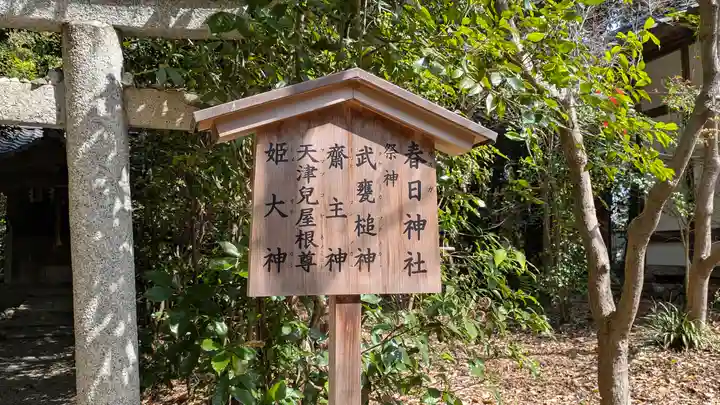 春日神社
祭神
武甕槌神
齋主神
天津兒屋根尊
姫大神